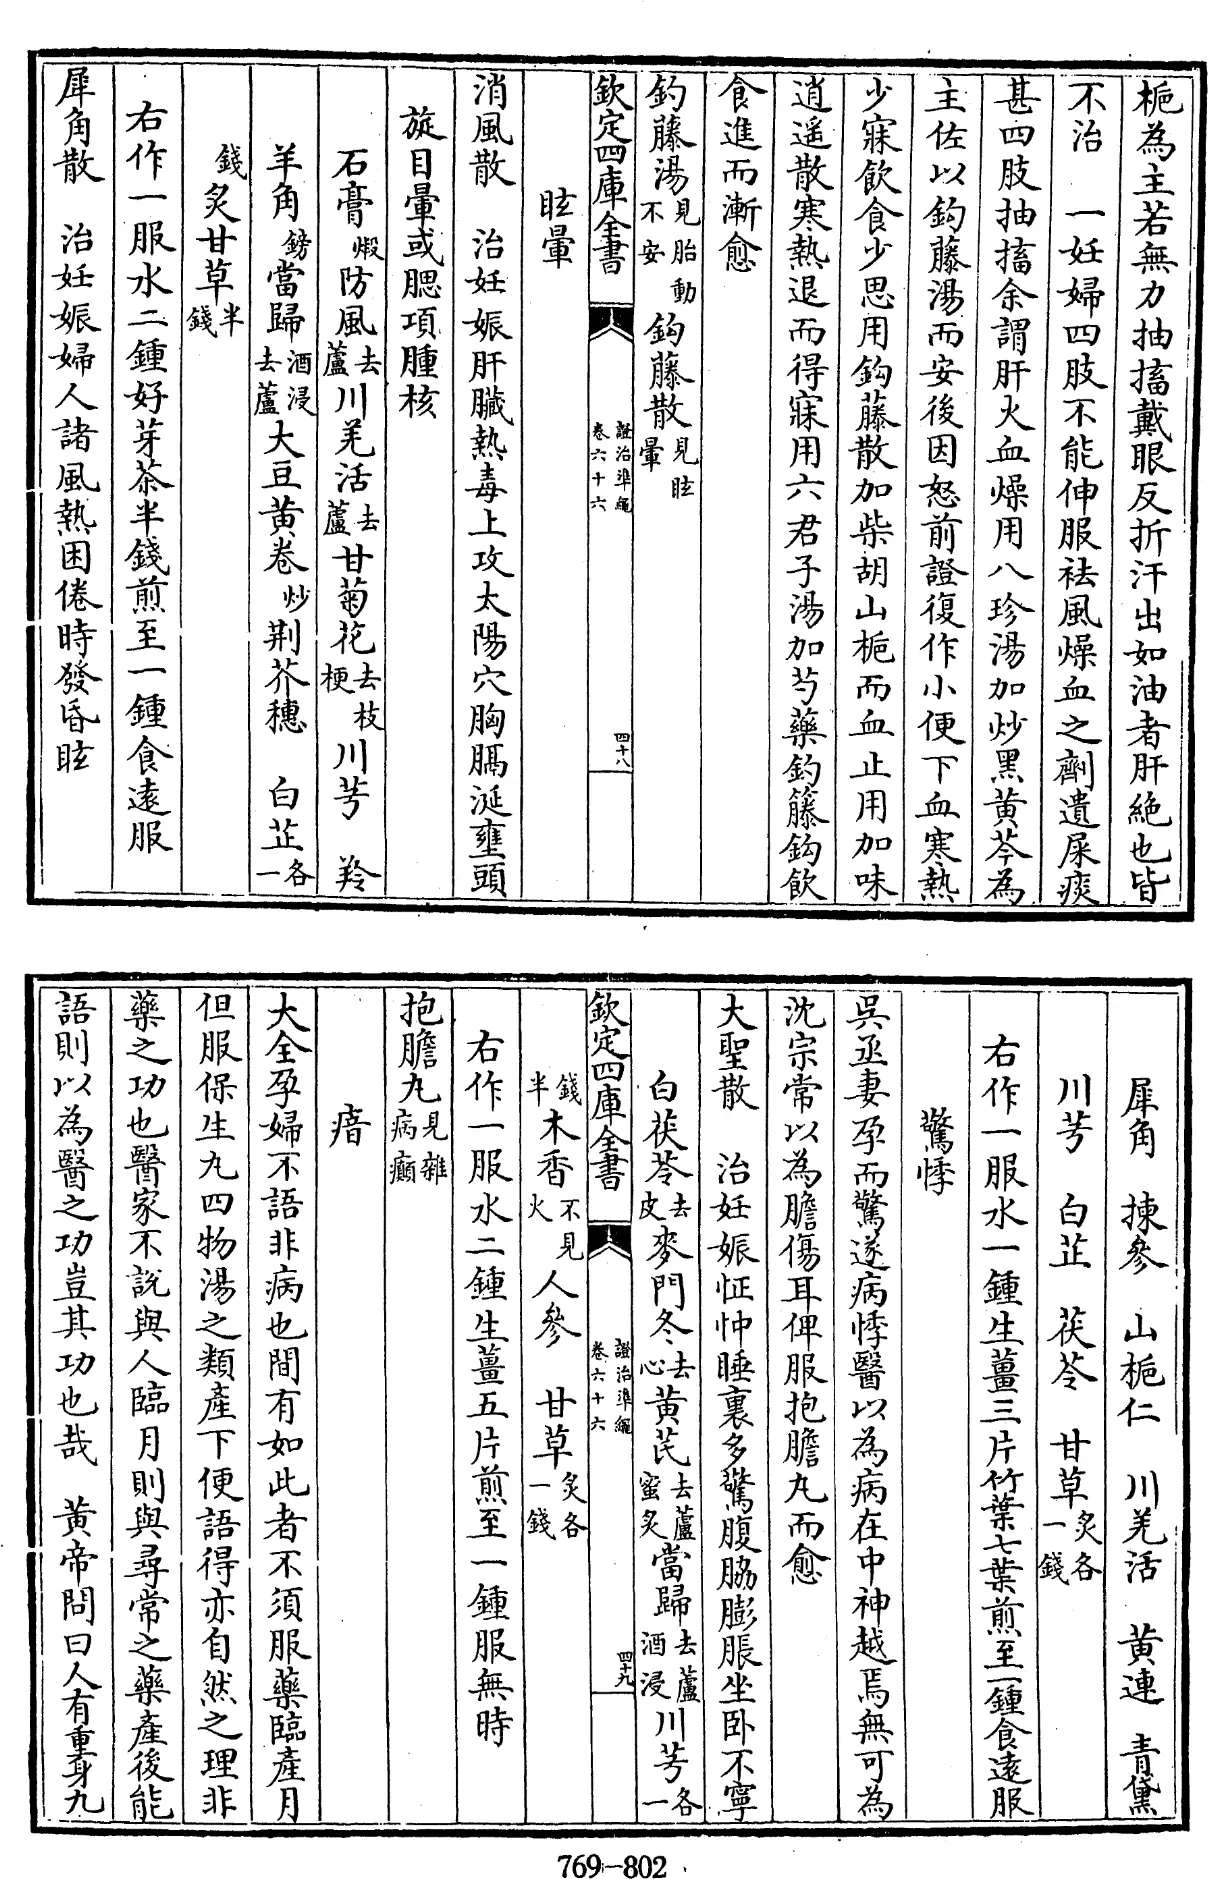 梔為主若無力抽搐戴眼反折汗出如油者肝絶也皆
不治　一妊婦四肢不能伸服祛風燥血之劑遺屎痰
甚四肢抽搐余謂肝火血燥用八珍湯加炒黑黄芩為
主佐以鈎藤湯而安後因怒前證復作小便下血寒熱
少寐飲食少思用鈎藤散加柴胡山梔而血止用加味
逍遥散寒熱退而得寐用六君子湯加芍藥釣籐鈎飲
食進而漸愈
釣藤湯見胎動不安　鈎藤散見眩暈
欽定四庫全書　證治準繩卷六十六　四十八
眩暈
消風散　治妊娠肝臟熱毒上攻太陽穴胸膈涎壅頭
旋目暈或腮項腫核
石膏煅防風去蘆川羌活去蘆甘菊花去枝梗川芎　羚
羊角鎊當歸酒浸去蘆大豆黄卷炒荆芥穗　白芷各一
錢炙甘草半錢
右作一服水二鍾好芽茶半錢煎至一鍾食遠服
犀角散　治妊娠婦人諸風熱困倦時發昏眩
犀角　揀參　山梔仁　川羌活　黄連　青黛
川芎　白芷　茯苓　甘草炙各一錢
右作一服水一鍾生薑三片竹葉七葉煎至一鍾食遠服
驚悸
吳丞妻孕而驚遂病悸醫以為病在中神越焉無可為
沈宗常以為膽傷耳俾服抱膽丸而愈
大聖散　治妊娠怔忡睡裏多驚腹脇膨脹坐卧不寧
白茯苓去皮麥門冬去心黄芪去蘆蜜炙當歸去蘆酒浸川芎各一
欽定四庫全書　證治準繩卷六十六　四十九
錢半木香不見火人參　甘草炙各一錢
右作一服水二鍾生薑五片煎至一鍾服無時
抱膽丸見雜病癲
瘖
大全孕婦不語非病也間有如此者不須服藥臨產月
但服保生丸四物湯之類產下便語得亦自然之理非
藥之功也醫家不說與人臨月則與尋常之藥產後能
語則以為醫之功豈其功也哉　黄帝問曰人有重身九
769-802